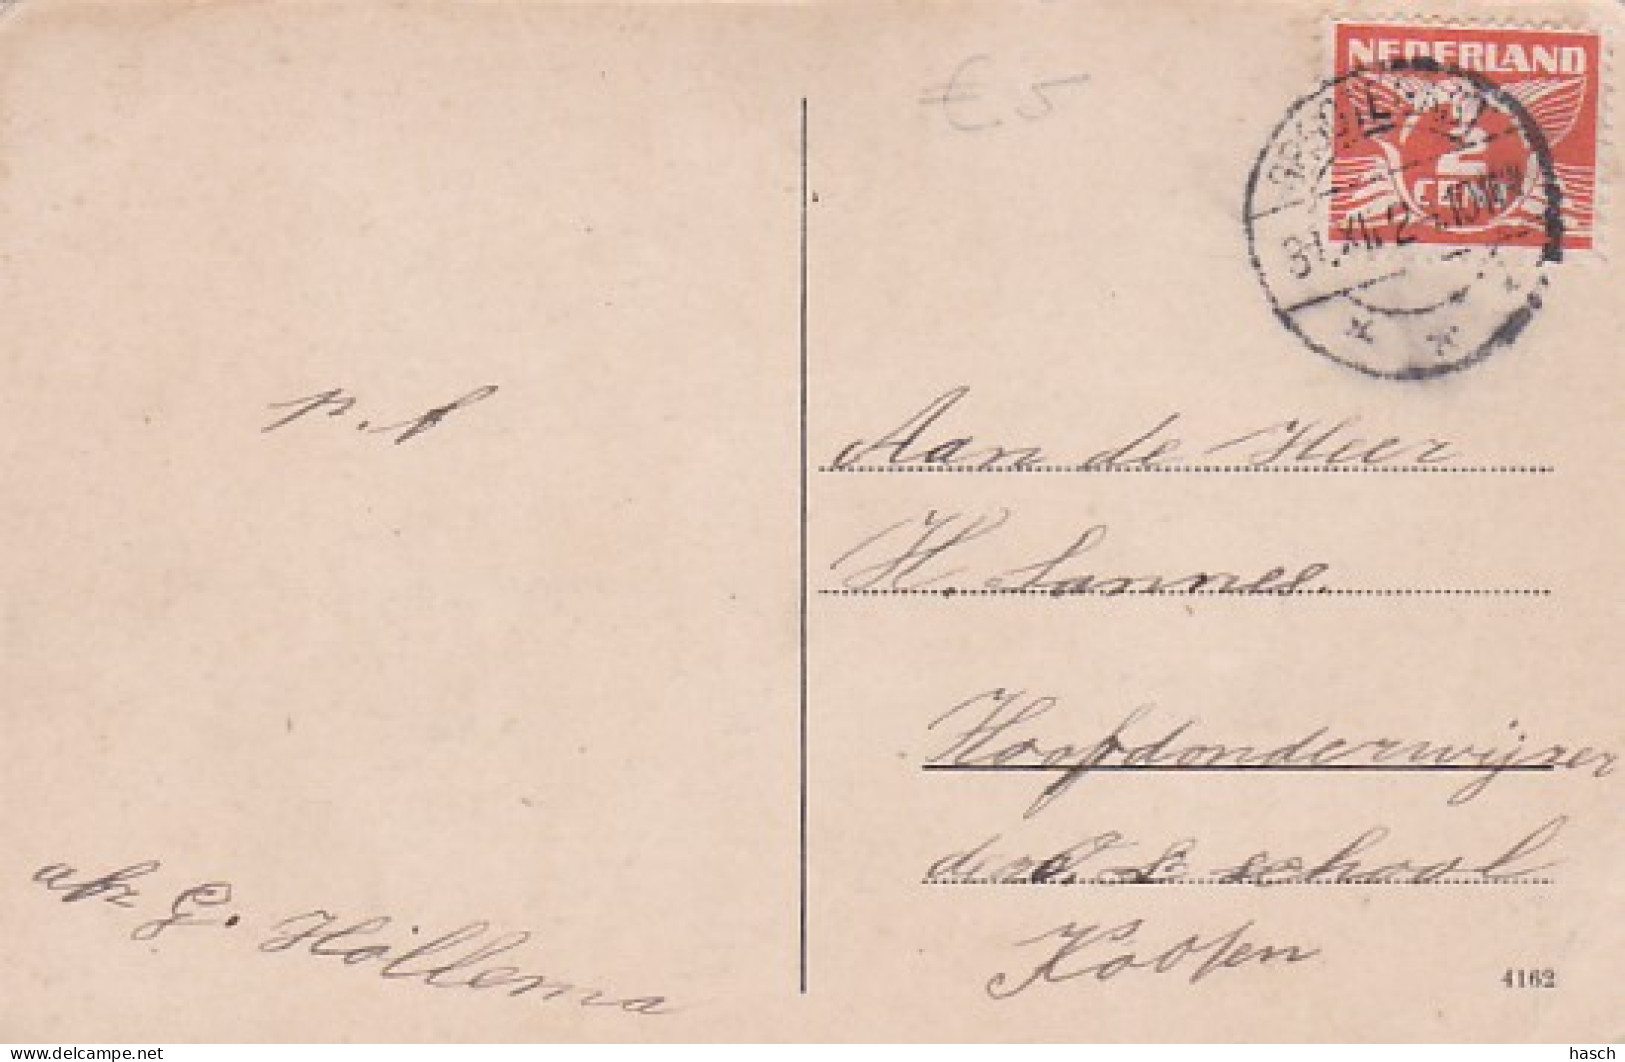 € 5
NEDERLAND
2
CENT
31.XII.2
p.f
Aan de Heer
H. Lannes.
Hoofdonderwijzer
school
Kooten
afz G. Hollema
4162
delcampe.net
hasch